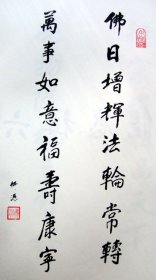 佛日增輝法輪常轉
萬事如意福壽康寧